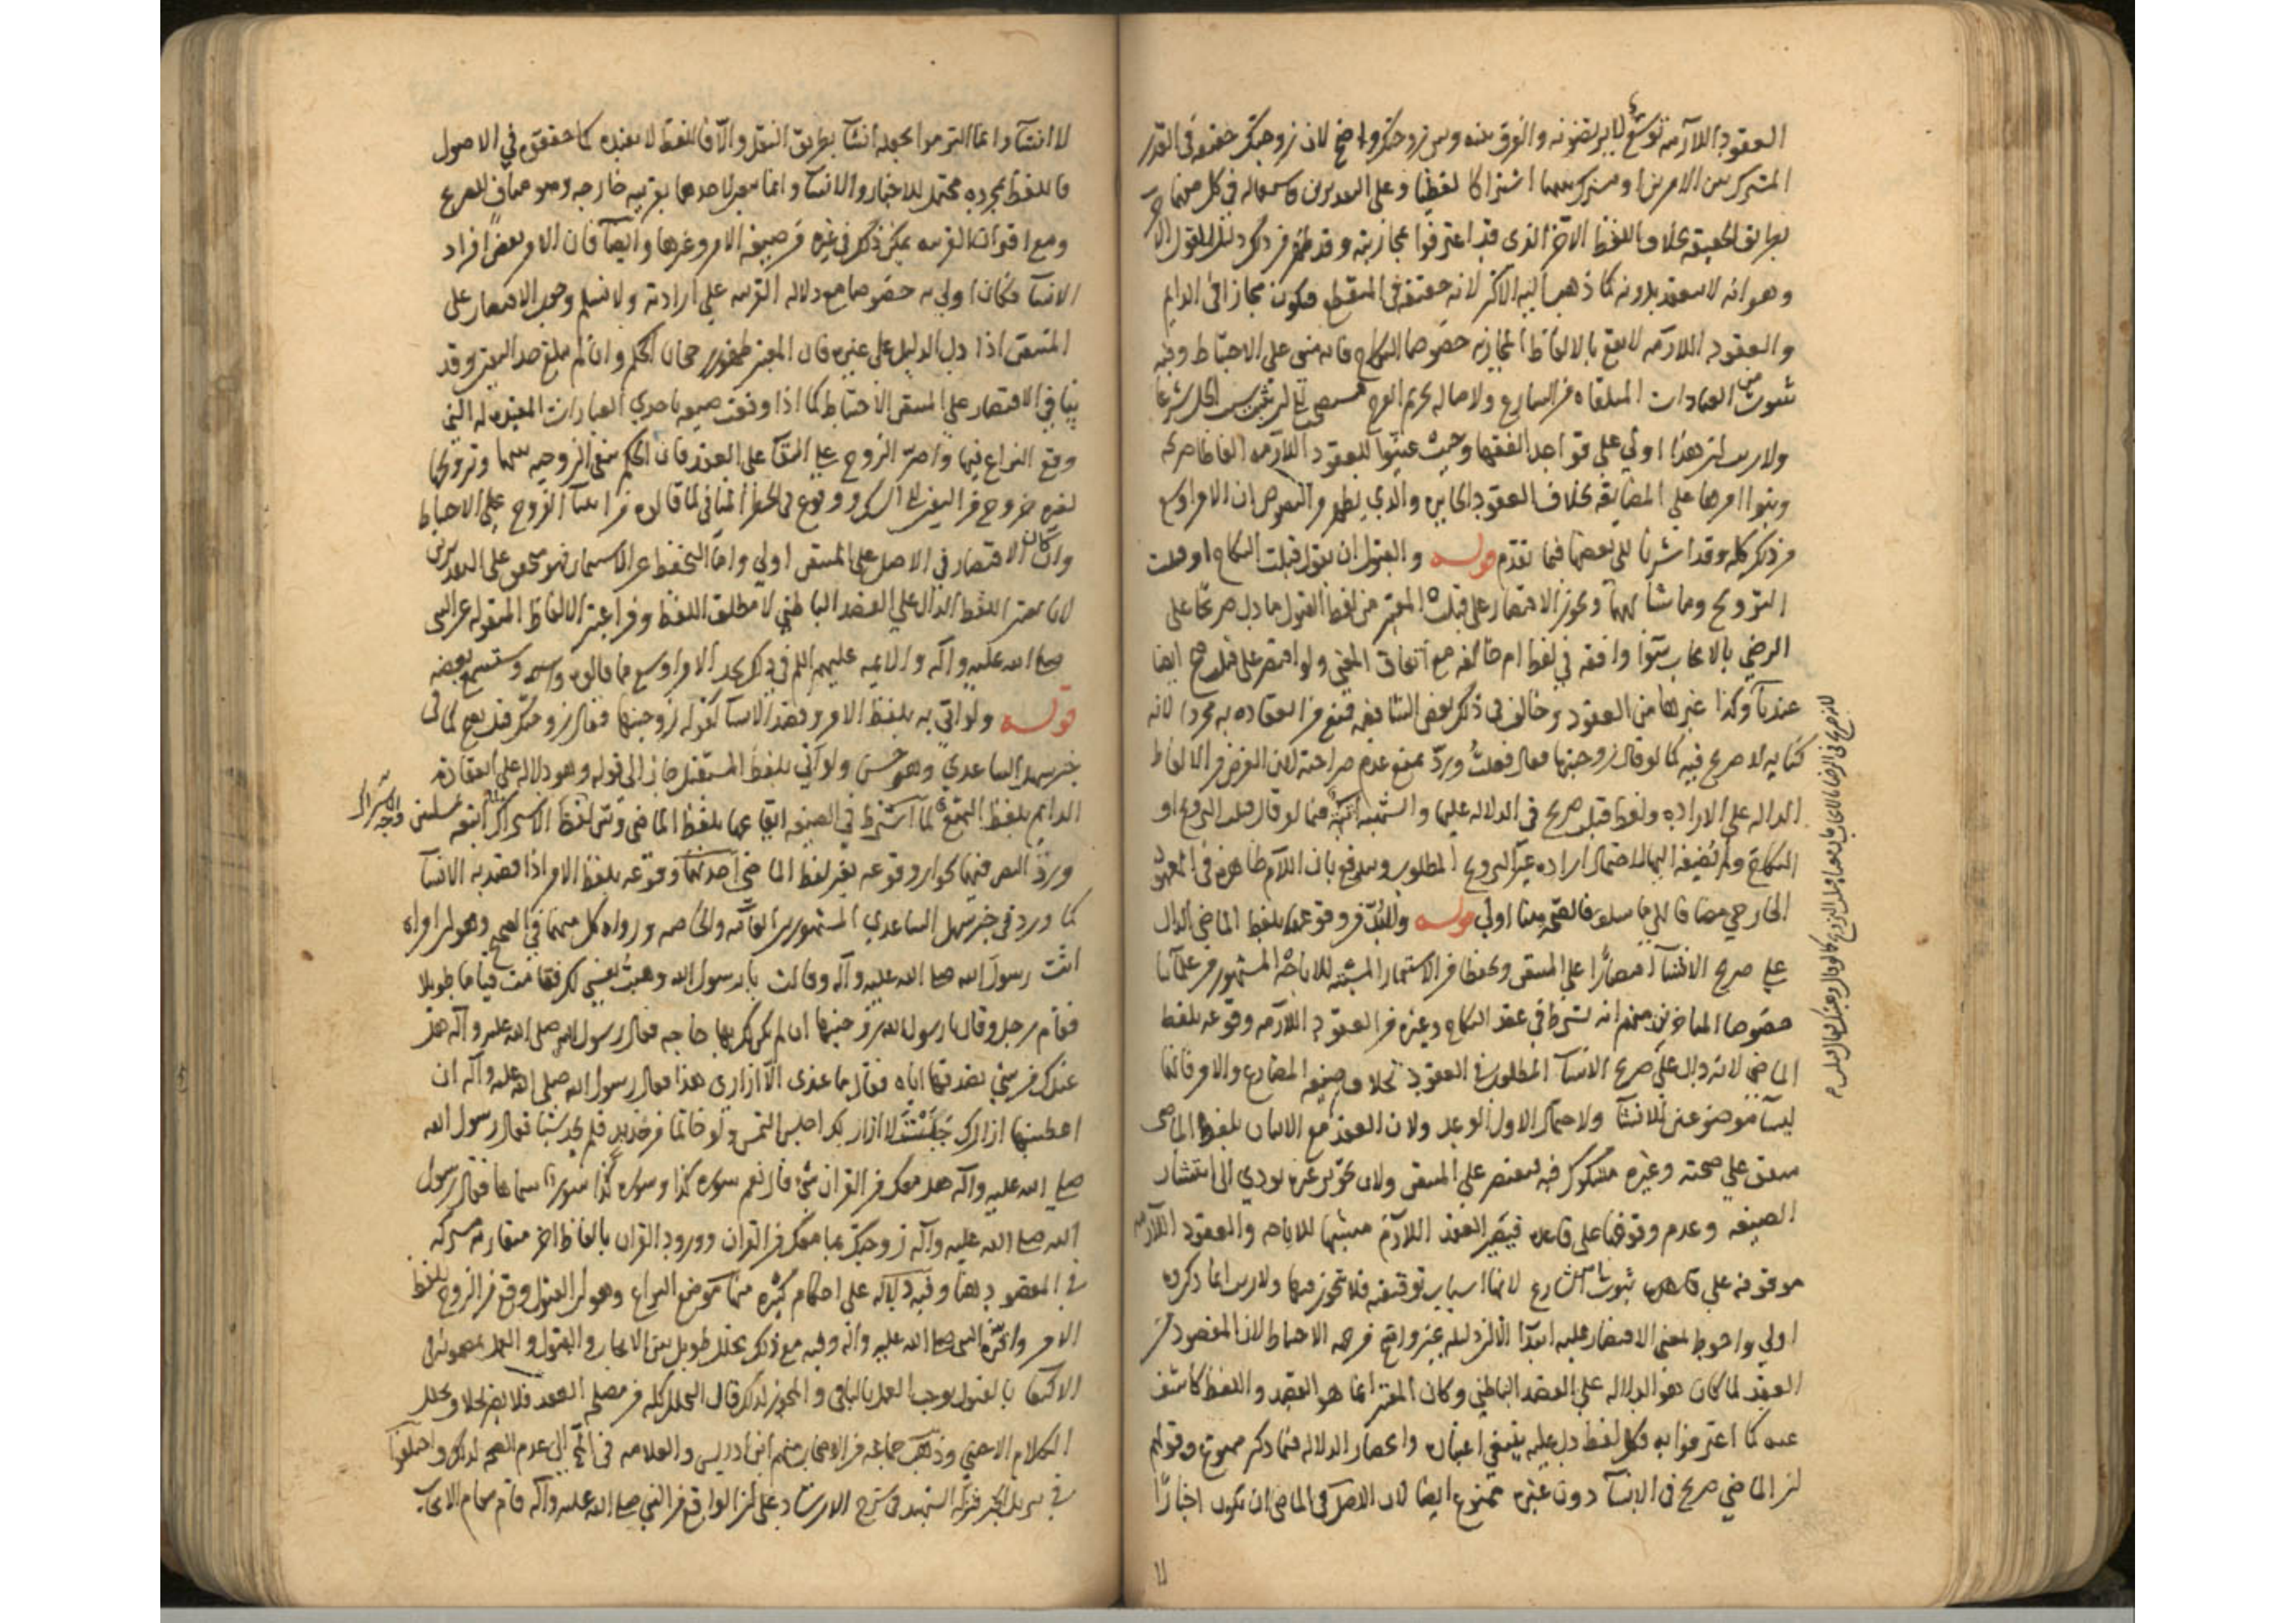 العقود اللازمة توسع لا يرتضونه والفرق بينه وبين زوجتك واضح لان زوجتك حقيقة في القدر
المشترك بين الامرين او مشترك بينهما اشتراكا لفظيا وعلى التقديرين فاستعماله في كل منهما
بطريق الحقيقة بخلاف اللفظ الآخر الذي قد اعترفوا بمجازيته وقد ظهر من ذلك دليل القول الآخر
وهو انه لا ينعقد به دونه كما ذهب اليه الاكثر لانه حقيقة في المنقطع فيكون مجازا في الدايم
والعقود اللازمة لا تقع بالالفاظ المجازية خصوصا النكاح فانه مبني على الاحتياط وفيه
شوب من العبادات المتلقاة من الشارع ولاصالة تحريم الفرج فيستصحب الى ان يثبت سبب الحل شرعا
ولا ريب ان هذا اولى على قواعد الفقها وحيث عينوا للعقود اللازمة الفاظا صريحة
وبنوا امرها على المضايقة بخلاف العقود الجايزة والذي يظهر من النصوص ان الامر اوسع
من ذلك كله وقد اشرنا الى بعضها فيما تقدم قوله والقبول ان يقول قبلت النكاح او قبلت
التزويج وما شابههما ويجوز الاقتصار على قبلت المعتبر من لفظ القبول ما دل صريحا على
الرضي بالايجاب سوآء وافقه في لفظه ام خالفه مع اتفاق المعنى ولو اقتصر على قبلت صح ايضا
عندنا وكذا غيرها من العقود وخالف في ذلك بعض الشافعية فمنع من انعقاده به مجردا لانه
كناية لا صريح فيه كما لو قال زوجنيها فقال فعلت ورد بمنع عدم صراحته لان الغرض من الالفاظ
الدالة على الارادة ولفظ قبلت صريح في الدلالة عليها والشبهة آتية فيما لو قال قبلت التزويج او
النكاح ولم يضفه اليها لاحتمال ارادة غير التزويج المطلوب ويندفع بان اللام ظاهرة في المعهود
الخارجي مضافا الى ما سلف فالصحة هنا اولى قوله ولا بد من وقوعهما بلفظ الماضي الدال
على صريح الانشآء اقتصارا على المتيقن وتحفظا من الاستمار المشبه للاباحة المشهور من علمآئنا
خصوصا المتاخرين منهم انه يشترط في عقد النكاح وغيره من العقود اللازمة وقوعه بلفظ
الماضي لانه دال على صريح الانشآء المطلوب في العقود بخلاف صيغة المضارع والامر فانهما
ليسا موضوعين للانشآء ولاحتمال الاول الوعد ولان العقد مع الاتيان بلفظ الماضي
متفق على صحته وغيره مشكوك فيه فيقتصر على المتيقن ولان تجويز غيره يودي الى انتشار
الصيغة وعدم وقوفها على قاعدة فيصير العقد اللازم مشبها للاباحة والعقود اللازمة
موقوفة على ثبوت امر من الشارع لانها اسباب توقيفية فلا تجوز فيها ولا ريب ان ما ذكروه
اولى واحوط لمعنى الاقتصار عليه ابتدآء الا ان دليله غير واضح من جهة الاحتياط لان المقصود من
العقد لما كان هو الدلالة على القصد الباطني وكان المعتبر انما هو القصد واللفظ كاشف
عنه كما اعترفوا به فكل لفظ دل عليه ينبغي اعتباره وانحصار الدلالة فيما ذكر ممنوع وقولهم
ان الماضي صريح في الانشآء دون غيره ممنوع ايضا لان الاصل في الماضي ان يكون اخبارا
لا انشآء وانما التزموا بجعله انشآء بطريق النقل والا فاللفظ لا يفيده كما حققوه في الاصول
فاللفظ بمجرده محتمل للاخبار والانشآء وانما يتعين لاحدهما بقرينة خارجه وهو مناف للصريح
ومع اقتران القرينة يمكن ذلك في غيره من صيغة الامر وغيرها وايضا فان الامر بعض افراد
الانشآء فكان اولى به خصوصا مع دلالة القرينة على ارادته ولا نسلم وجوب الاقتصار على
المتيقن اذا دل الدليل على غيره فان المعتبر ظهور رجحان الحكم وان لم يبلغ حد اليقين وقد
ينافي الاقتصار على المتيقن الاحتياط كما اذا وقعت صيغة باحدي العبارات المعتبرة التي
وقع النزاع فيها واصر الزوج على البقآء على العقد فان الحكم بنفي الزوجيه بينهما وتزويجها
لغيره خروج من اليقين الى الشك ووقوع في الخطر المنافي لما قالوه من ابتنآء الفروج على الاحتياط
وان كان الاقتصار في الاصل على المتيقن اولى واما التحفظ عن الاستمار فهو متحقق على التقديرين
لانا نعتبر اللفظ الدال على القصد الباطني لا مطلق اللفظ ومن اعتبر الالفاظ المنقولة عن النبي
صلى الله عليه وآله والائمة عليهم السلم في ذلك يجد الامر اوسع مما قالوه وستسمع بعضه
قوله ولو اتى به بلفظ الامر وقصد الانشآء كقوله زوجنيها فقال زوجتك قيل يصح كما في
خبر سهل الساعدي وهو حسن ولو اتى بلفظ المستقبل جاز الى قوله وهو دلالة على انعقاده
الدايم بلفظ التمتع لما اشترط في الصيغة ايقاعها بلفظ الماضي وتبين وجه الاشتراك اتبعه مسئلتين
ورد النص فيهما بجواز وقوعه بغير لفظ الماضي احدهما وقوعه بلفظ الامر اذا قصد به الانشآء
كما ورد في خبر سهل الساعدي المشهور بين العامة والخاصة ورواه كل منهما في الصحيح وهو ان امراة
اتت رسول الله صلى الله عليه وآله وقالت يا رسول الله وهبت نفسي لك فقامت قياما طويلا
فقام رجل وقال يا رسول الله زوجنيها ان لم يكن لك بها حاجه فقال رسول الله صلى الله عليه وآله هل
عندك من شي تصدقها اياه فقال ما عندي الا ازاري هذا فقال رسول الله صلى الله عليه وآله ان
اعطيتها ازارك جلست لا ازار لك اجلس التمس ولو خاتما من حديد فلم يجد شيئا فقال رسول الله
صلى الله عليه وآله هل معك من القران شي قال نعم سورة كذا وسورة كذا لسور سماها فقال رسول
الله صلى الله عليه وآله زوجتك بما معك من القران وورود القران بالفاظ اخر متقاربة مشتركة
في المقصود هنا وفيه دلالة على احكام كثيرة منها موضع النزاع وهو ان القبول وقع من الزوج بلفظ
الامر واخره النبي صلى الله عليه وآله وفيه مع ذلك تخلل طويل بين الايجاب والقبول والعمل بمضمونه في
الاكتفآء بالقبول يوجب العمل بالباقي والمجوز لذلك قال التخلل كله من مصلحة العقد فلا يضر انما يضر تخلل
الكلام الاجنبي وذهب جماعة من الاصحاب منهم ابن ادريس والعلامة في المخ الى عدم الصحة لذلك واختلفوا
في تنزيل الخبر فنزله الشهيد في شرح الارشاد على ان الواقع من النبي صلى الله عليه وآله قام مقام الايجاب